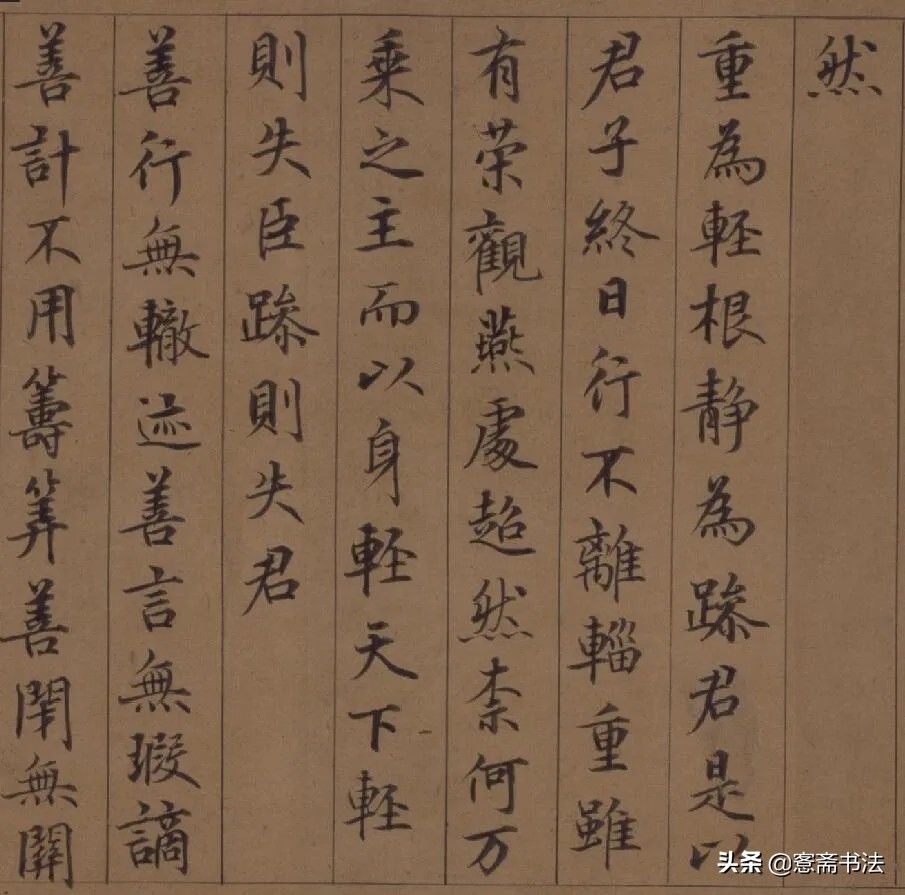 然
重為輕根静為躁君是以
君子終日行不離輜重雖
有荣觀燕處超然柰何万
乗之主而以身輕天下輕
則失臣躁則失君
善行無轍迹善言無瑕謫
善計不用籌筭善閇無關
头条 @愙斋书法